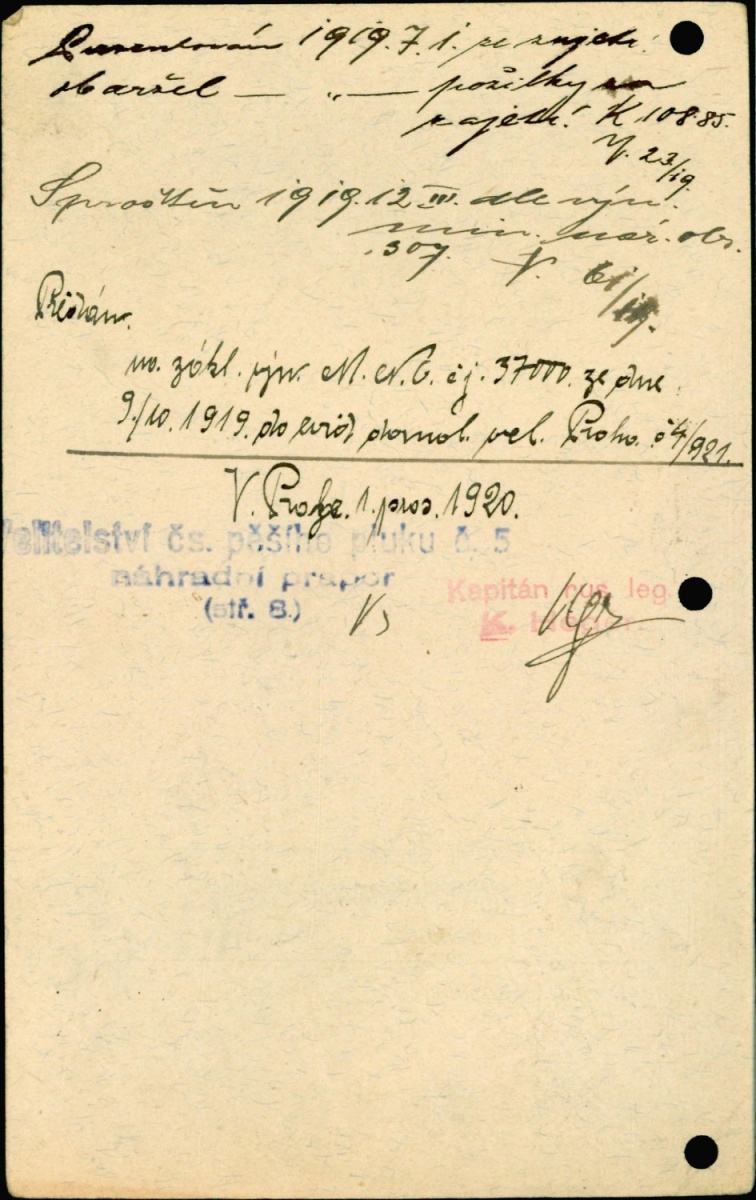 Presentován 1919.7.1. ze zajetí.
obdržel — „ — požitky za
zajetí! K 108.85.
V. 23/19.
Sproštěn 1919.12 III. dle výn.
min. nár. obr.
307. V. 61/19.
Přidán
na zákl. výn. M. N. O. čj. 37000. ze dne
9./10. 1919. do evid. domob. vel. Praha. č 4/921.
V. Praze. 1. pros. 1920.
Velitelství čs. pěšího pluku č. 5
náhradní prapor
(stř. 8.)
Kapitán rus. leg.
K.